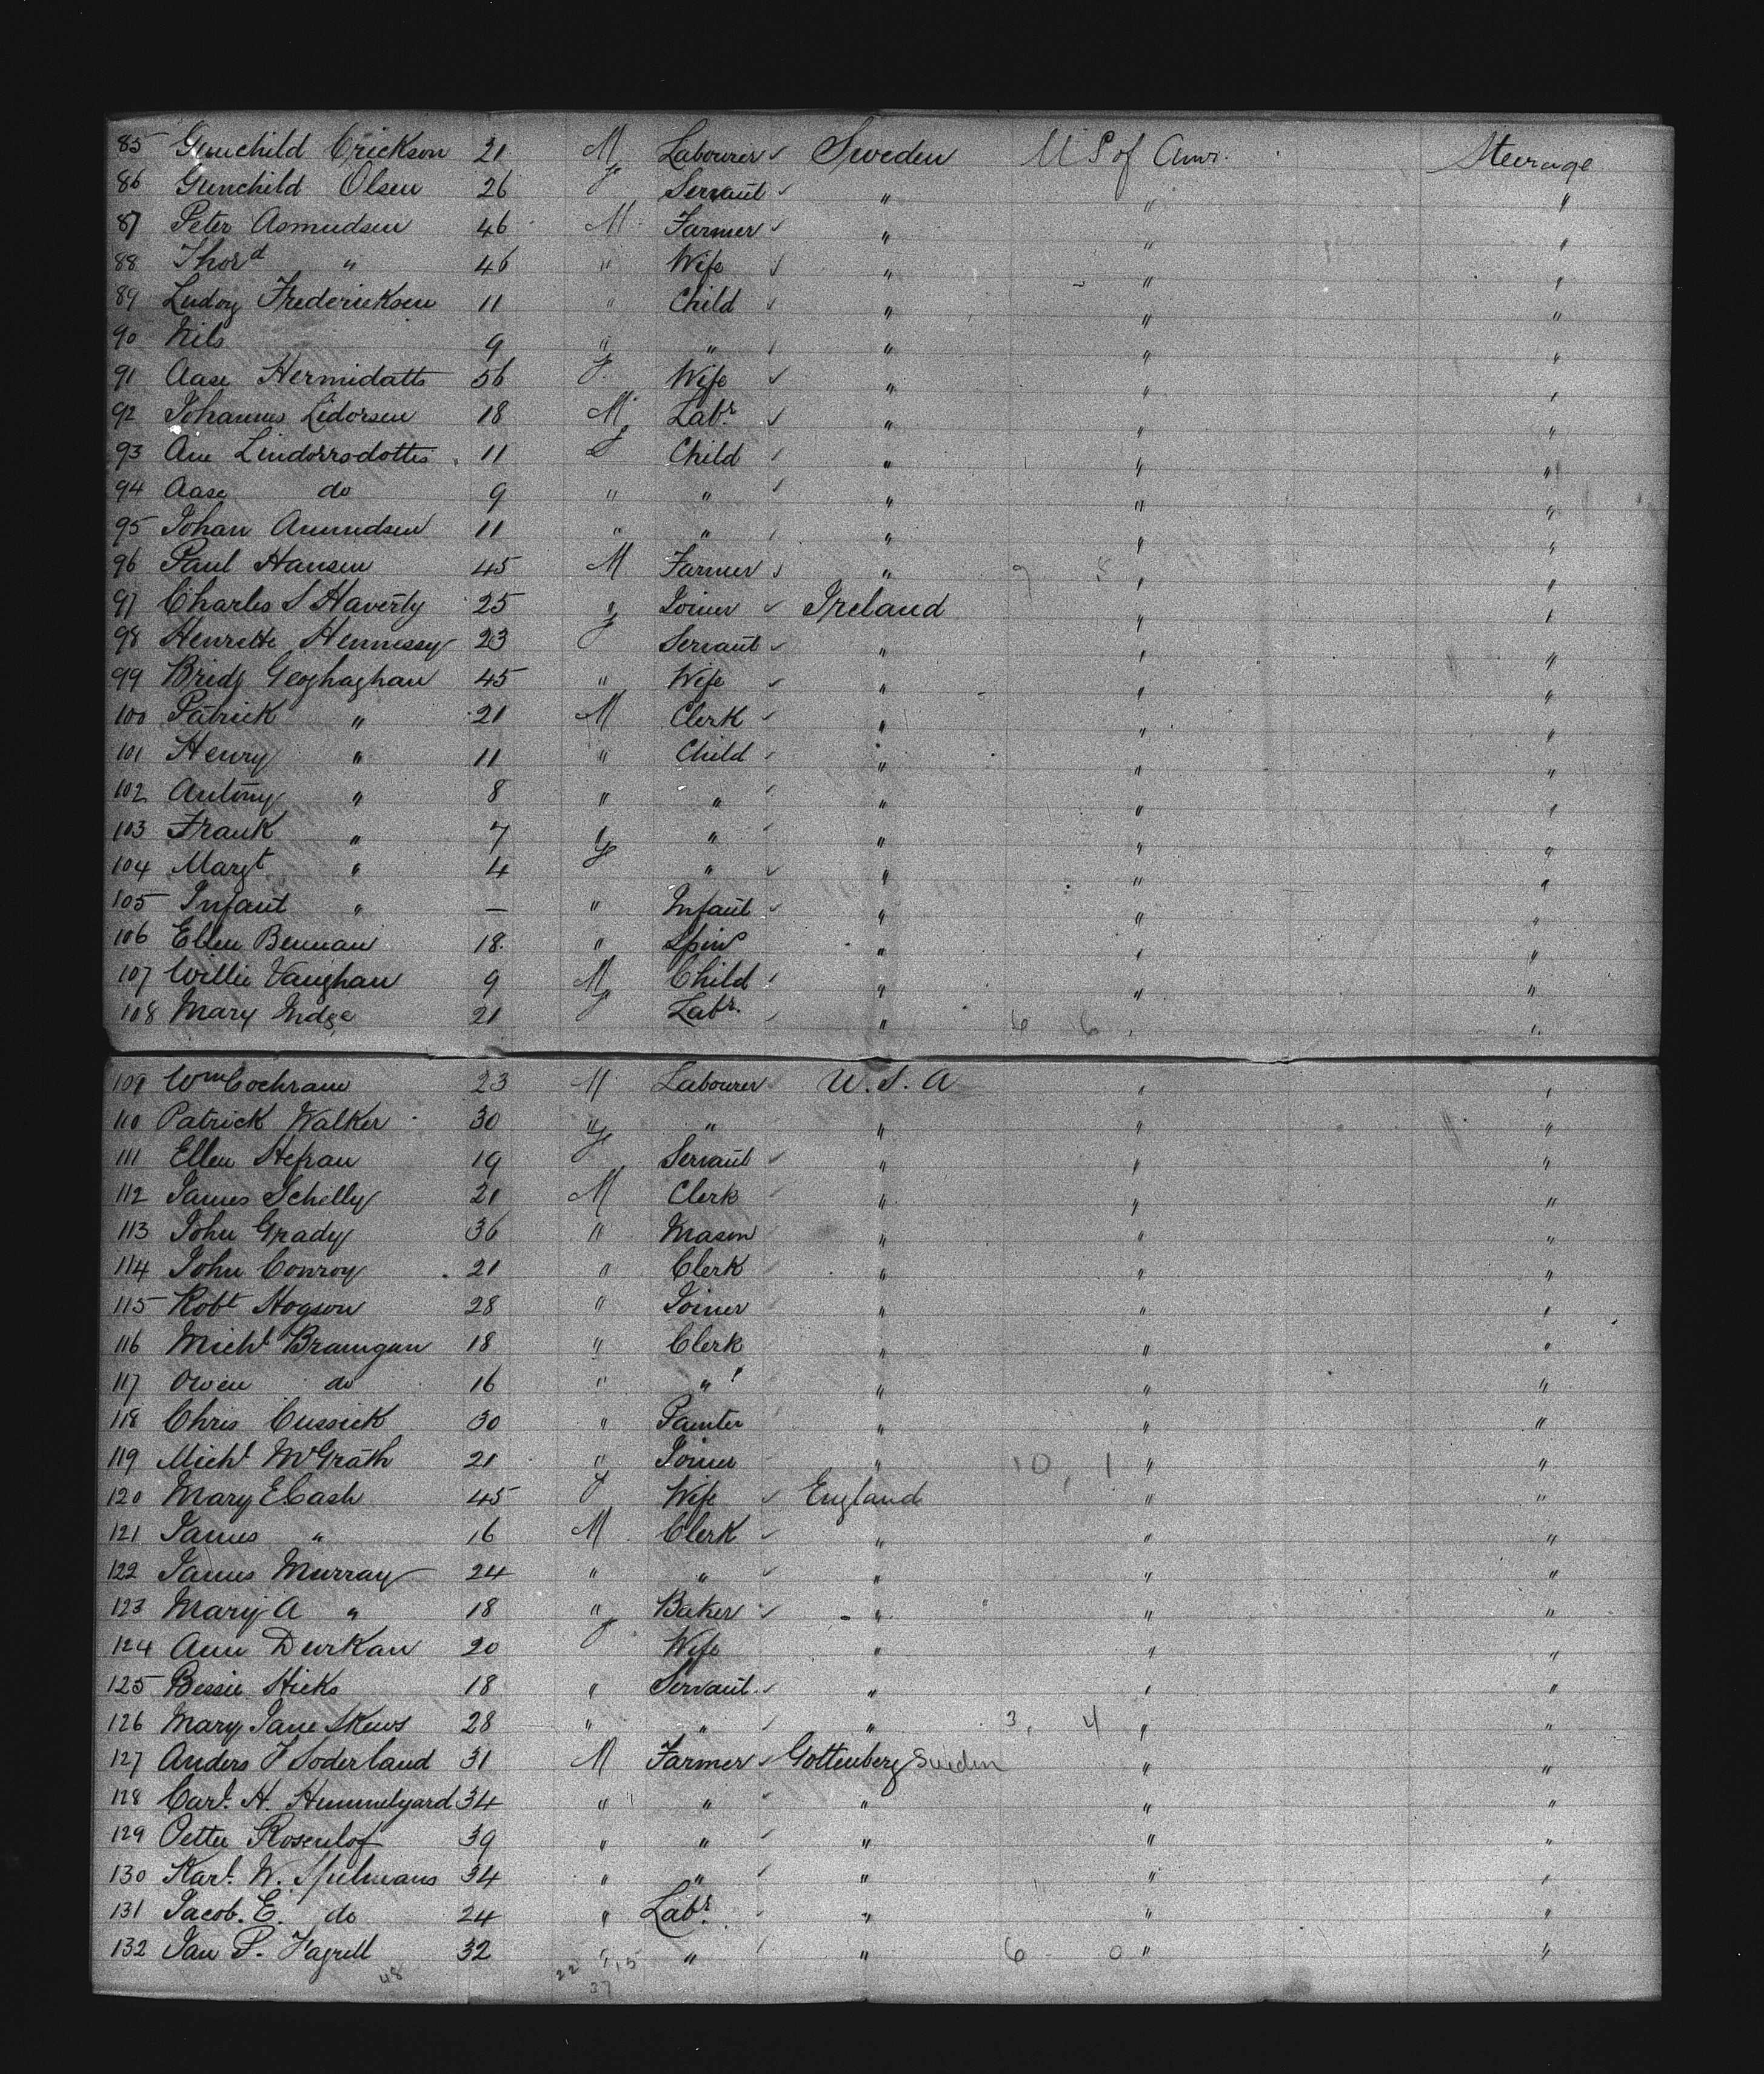 85 Gunchild Erickson 21 M Labourer Sweden U S of Amr. Steerage
86 Gunchild Olsen 26 f Servant " " "
87 Peter Asmudsen 46 M Farmer " " "
88 Thord " 46 " Wife " " "
89 Ludog Fredericksen 11 " Child " " "
90 Nils 9 " " " " "
91 Aase Hermidatts 56 f Wife " " "
92 Johannes Lidorsen 18 M Labr. " " "
93 Ane Lindorrsdotties 11 f Child " " "
94 Aase do 9 " " " " "
95 Johan Amundsen 11 " " " " "
96 Paul Hansen 45 M Farmer " 9 8 " "
97 Charles S Haverty 25 " Joiner Ireland " "
98 Henrette Hennessy 23 f Servant " " "
99 Bridg Geoghaghan 45 " Wife " " "
100 Patrick " 21 M Clerk " " "
101 Henry " 11 " Child " " "
102 Antony " 8 " " " " "
103 Frank " 7 " " " " "
104 Margt " 4 f " " " "
105 Infant " — " Infant " " "
106 Ellen Bennan 18 " Spins " " "
107 Willie Vaughan 9 M Child " " "
108 Mary Indge 21 f Labr. " 6 6 " "
109 Wm Cochrane 23 M Labourer U.S.A " "
110 Patrick Walker 30 " " " " "
111 Ellen Hefran 19 f Servant " " "
112 James Schelly 21 M Clerk " " "
113 John Grady 36 " Mason " " "
114 John Conroy 21 " Clerk " " "
115 Robt Hogson 28 " Joiner " " "
116 Michl Branigan 18 " Clerk " " "
117 Owen do 16 " " " " "
118 Chris Cussick 30 " Painter " " "
119 Michl McGrath 21 " Joiner " 10, 1 " "
120 Mary E Cash 45 f Wife England " "
121 James " 16 M Clerk " " "
122 James Murray 24 " " " " "
123 Mary A " 18 " Baker " " "
124 Ann Durkan 20 f Wife " " "
125 Bessie Hicks 18 " Servant " " "
126 Mary Jane Skews 28 " " " 3, 4 " "
127 Anders F Soderland 31 M Farmer Gottenberg Sweden " "
128 Carl. H. Hummelgard 34 " " " " "
129 Oette Rosenlof 39 " " " " "
130 Karl. W. Spelmans 34 " " " " "
131 Jacob. E. do 24 " Labr. " " "
132 Jan P. Fagrell 32 " " " 6 0 " "
48 22 15
37